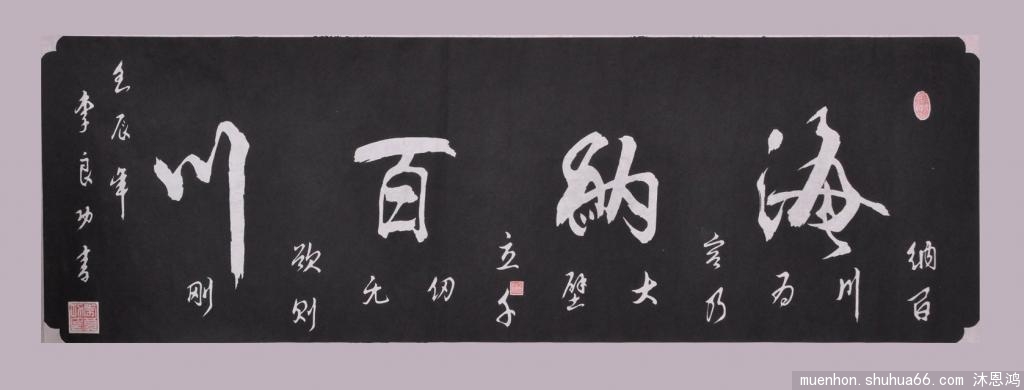 海纳百川
纳百川有容乃大壁立千仞无欲则刚
壬辰年
李良功书
muenhon.shuhua66.com 沐恩鸿